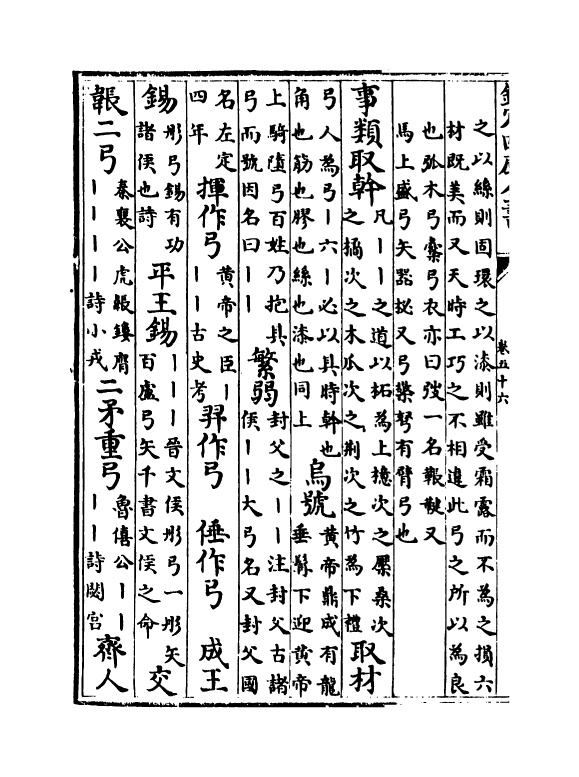 之以絲則固環之以漆則雖受霜露而不為之損六
材既美而又天時工巧之不相違此弓之所以為良
也弧木弓櫜弓衣亦曰弢一名韔韔又
馬上盛弓矢器柲又弓檠弩有臂弓也
事類取幹凡丨丨之道以柘為上檍次之檿桑次之橘次之木瓜次之荊次之竹為下禮取材
弓人為弓丨六丨必以其時幹也角也筋也膠也絲也漆也同上烏號黃帝鼎成有龍垂鬍下迎黃帝
上騎墮弓百姓乃抱其弓而號因名曰丨丨繁弱封父之丨丨注封父古諸侯丨丨大弓名又封父國
名左定四年揮作弓黃帝之臣丨丨丨古史考羿作弓 倕作弓 成王
錫彤弓錫有功諸侯也詩平王錫丨丨丨晉文侯彤弓一彤矢百盧弓矢千書文侯之命交
韔二弓秦襄公虎韔鏤膺丨丨丨丨詩小戎二矛重弓魯僖公丨丨丨丨詩閟宮齊人
卷五十六